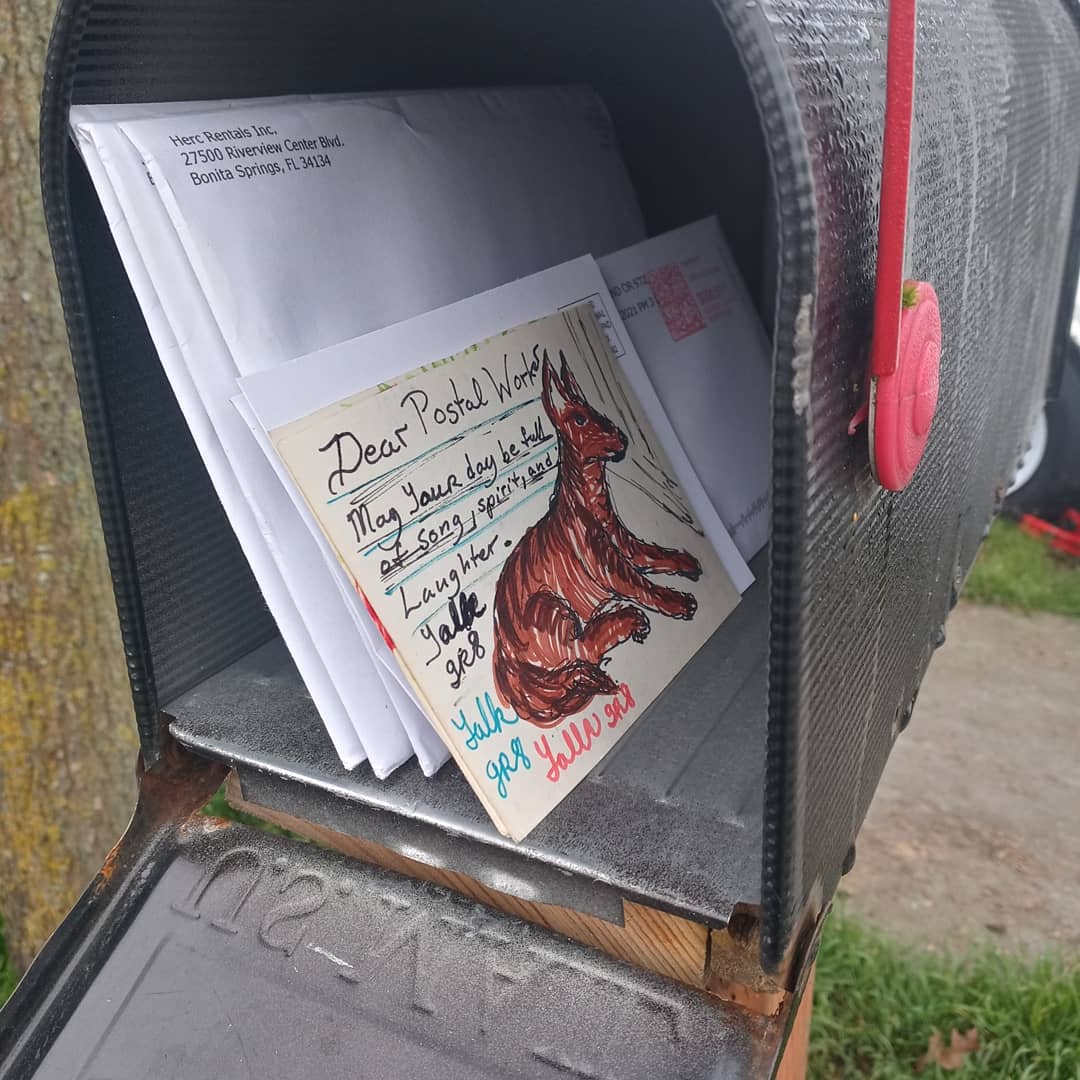 Herc Rentals Inc.
27500 Riverview Center Blvd.
Bonita Springs, FL 34134
ND OR 972
2021 PM 3
Dear Postal Worker
May Your day be full
of song, spirit, and
Laughter.
Yalk
gR8
Yalk
gR8
Yalk gR8
U.S. MAIL